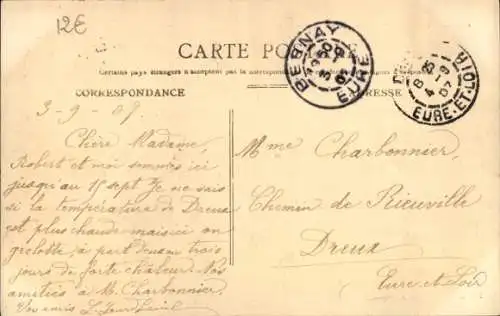 12€
CARTE POSTALE
Certains pays étrangers n'acceptent pas la correspondance
CORRESPONDANCE
ADRESSE
BERNAY
EURE
EURE-ET-LOIR
3-9-09.
Chère Madame,
Robert et moi sommes ici
jusqu'au 15 sept Je ne sais
si la température de Dreux
est plus chaude mais ici on
grelotte, à part trois
jours de forte chaleur. Nos
amitiés à M. Charbonnier.
Mme Charbonnier,
Chemin de Rieuville
Dreux
Eure et Loir